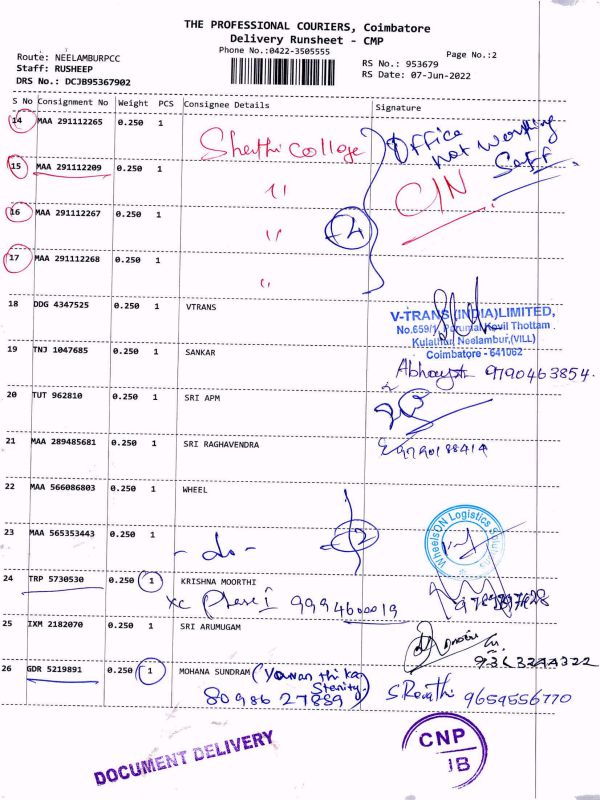 THE PROFESSIONAL COURIERS, Coimbatore
Delivery Runsheet - CMP
Phone No.:0422-3505555
Page No.:2
Route: NEELAMBURPCC
Staff: RUSHEEP
DRS No.: DCJB95367902
RS No.: 953679
RS Date: 07-Jun-2022
S No Consignment No Weight PCS Consignee Details Signature
14 MAA 291112265 0.250 1 Office not working
15 MAA 291112209 0.250 1 College
16 MAA 291112267 0.250 1 " 4
17 MAA 291112268 0.250 1 "
18 DDG 4347525 0.250 1 VTRANS
V-TRANS (INDIA) LIMITED,
No.659/1, Perumal Kovil Thottam
Kulathur, Neelambur,(VILL)
Coimbatore - 641062
19 TNJ 1047685 0.250 1 SANKAR 9790463854.
20 TUT 962810 0.250 1 SRI APM
21 MAA 289485681 0.250 1 SRI RAGHAVENDRA
22 MAA 566086803 0.250 1 WHEEL
23 MAA 565353443 0.250 1 - do - 2
WheelsON Logistics Solutions
24 TRP 5730530 0.250 1 KRISHNA MOORTHI
9994600019
25 IXM 2182070 0.250 1 SRI ARUMUGAM
26 GDR 5219891 0.250 1 MOHANA SUNDRAM
80986 27889 S. Revathi 9659556770
DOCUMENT DELIVERY
CNP
JB